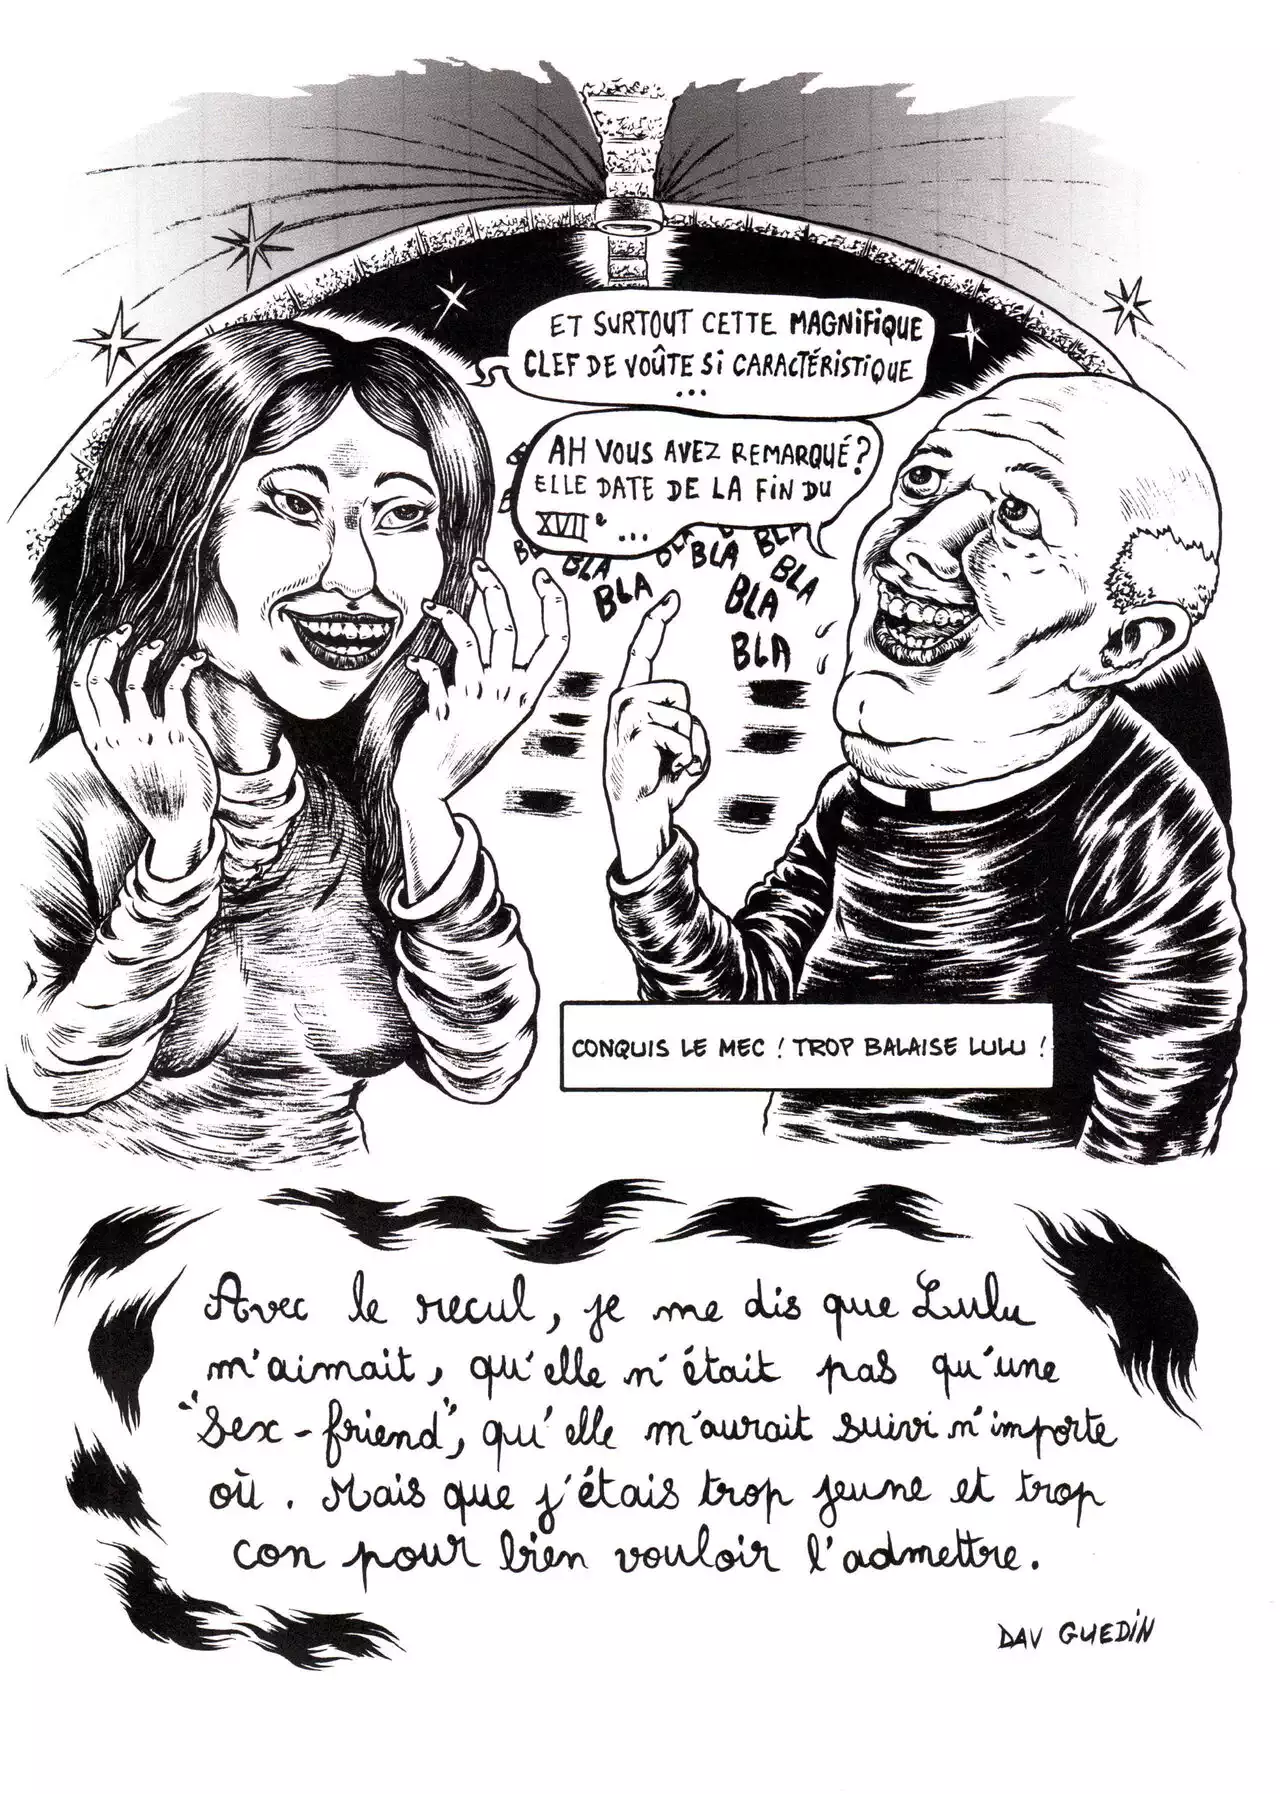 ET SURTOUT CETTE MAGNIFIQUE
CLEF DE VOÛTE SI CARACTÉRISTIQUE
...
AH VOUS AVEZ REMARQUÉ?
ELLE DATE DE LA FIN DU
XVIIe ...
BLA BLA BLA
BLA BLA
BLA BLA
BLA
CONQUIS LE MEC ! TROP BALAISE LULU !
Avec le recul, je me dis que Lulu
m'aimait, qu'elle n'était pas qu'une
"sex-friend", qu'elle m'aurait suivi n'importe
où. Mais que j'étais trop jeune et trop
con pour bien vouloir l'admettre.
DAV GUEDIN